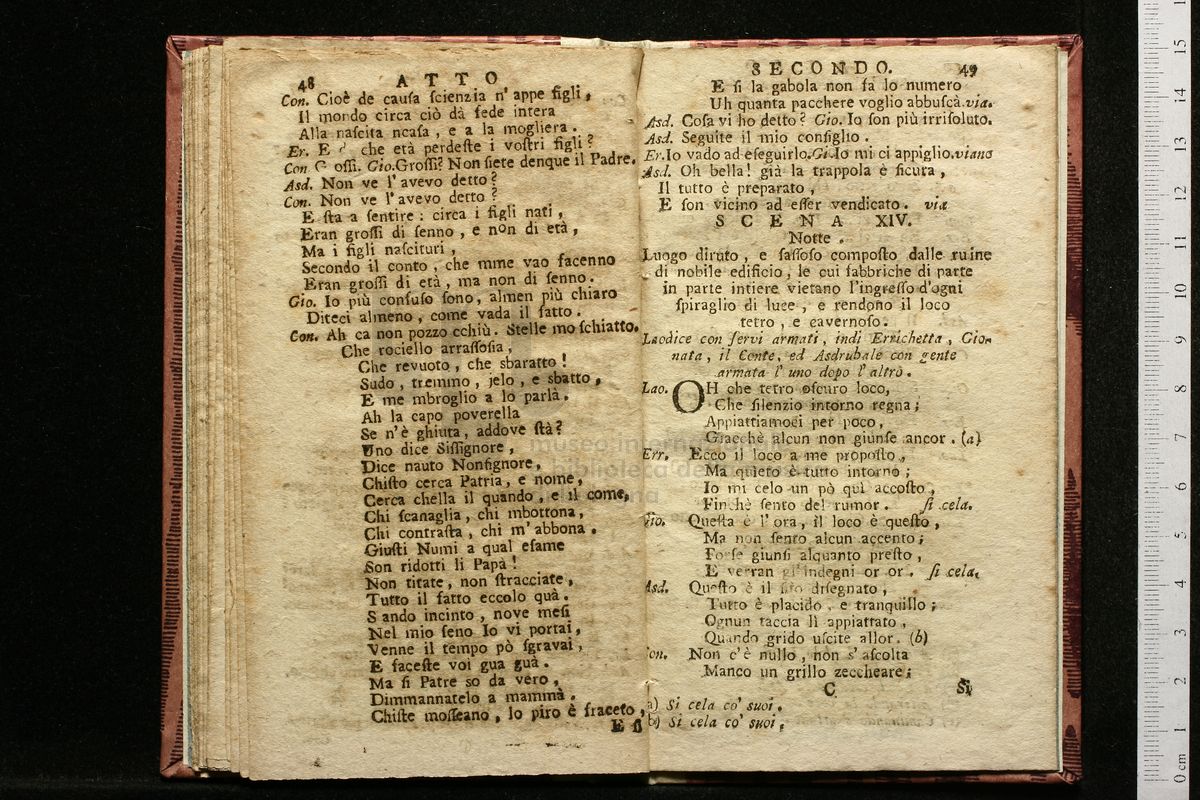 48 ATTO
Con. Cioè de cauſa ſcienzia n' appe figli,
Il mondo circa ciò dà fede intera
Alla naſcita ncaſa, e a la mogliera.
Er. E che età perdeſte i voſtri figli?
Con oſſi. Gio. Groſſi? Non ſiete denque il Padre.
Asd. Non ve l'avevo detto?
Con. Non ve l'avevo detto?
E ſta a ſentire: circa i figli nati,
Eran groſſi di ſenno, e non di età,
Ma i figli naſcituri,
Secondo il conto, che mme vao facenno
Eran groſſi di età, ma non di ſenno.
Gio. Io più confuſo ſono, almen più chiaro
Diteci almeno, come vada il fatto.
Con. Ah ca non pozzo cchiù. Stelle mo ſchiatto.
Che rociello arraſſoſia,
Che revuoto, che sbaratto!
Sudo, tremmo, jelo, e sbatto,
E me mbroglio a lo parlà.
Ah la capo poverella
Se n'è ghiuta, addove ſtà?
Uno dice Siſſignore,
Dice nauto Nonſignore,
Chiſto cerca Patria, e nome,
Cerca chella il quando, e il come,
Chi ſcanaglia, chi mbottona,
Chi contraſta, chi m'abbona.
Giuſti Numi a qual eſame
Son ridotti li Papà!
Non titate, non ſtracciate,
Tutto il fatto eccolo quà.
S ando incinto, nove meſi
Nel mio ſeno Io vi portai,
Venne il tempo pò ſgravai,
E faceſte voi gua guà.
Ma ſi Patre so da vero,
Dimmannatelo a mammà.
Chiſte moſſeano, lo piro è fraceto,
E ſi
SECONDO. 49
E ſi la gabola non fa lo numero
Uh quanta pacchere voglio abbuſcà. via.
Asd. Coſa vi ho detto? Gio. Io ſon più irriſoluto.
Asd. Seguite il mio conſiglio.
Er. Io vado ad eſeguirlo. Gi. Io mi ci appiglio. viano
Asd. Oh bella! già la trappola è ſicura,
Il tutto è preparato,
E ſon vicino ad eſſer vendicato. via
SCENA XIV.
Notte.
Luogo diruto, e ſaſſoſo compoſto dalle ruine
di nobile edificio, le cui fabbriche di parte
in parte intiere vietano l'ingreſſo d'ogni
ſpiraglio di luce, e rendono il loco
tetro, e cavernoſo.
Laodice con ſervi armati, indi Errichetta, Gio-
nata, il Conte, ed Asdrubale con gente
armata l'uno dopo l'altro.
Lao. OH che tetro oſcuro loco,
Che ſilenzio intorno regna;
Appiattiamoci per poco,
Giacchè alcun non giunſe ancor. (a)
Err. Ecco il loco a me propoſto,
Ma quieto è tutto intorno;
Io mi celo un pò quì accoſto,
Finchè ſento del rumor. ſi cela.
Gio. Queſta è l'ora, il loco è queſto,
Ma non ſento alcun accento;
Forſe giunſi alquanto preſto,
E verran gl'indegni or or. ſi cela.
Asd. Queſto è il ſito diſegnato,
Tutto è placido, e tranquillo;
Ognun taccia lì appiattato,
Quando grido uſcite allor. (b)
Con. Non c'è nullo, non s'aſcolta
Manco un grillo zeccheare;
C Si
a) Si cela co' ſuoi.
b) Si cela co' ſuoi.